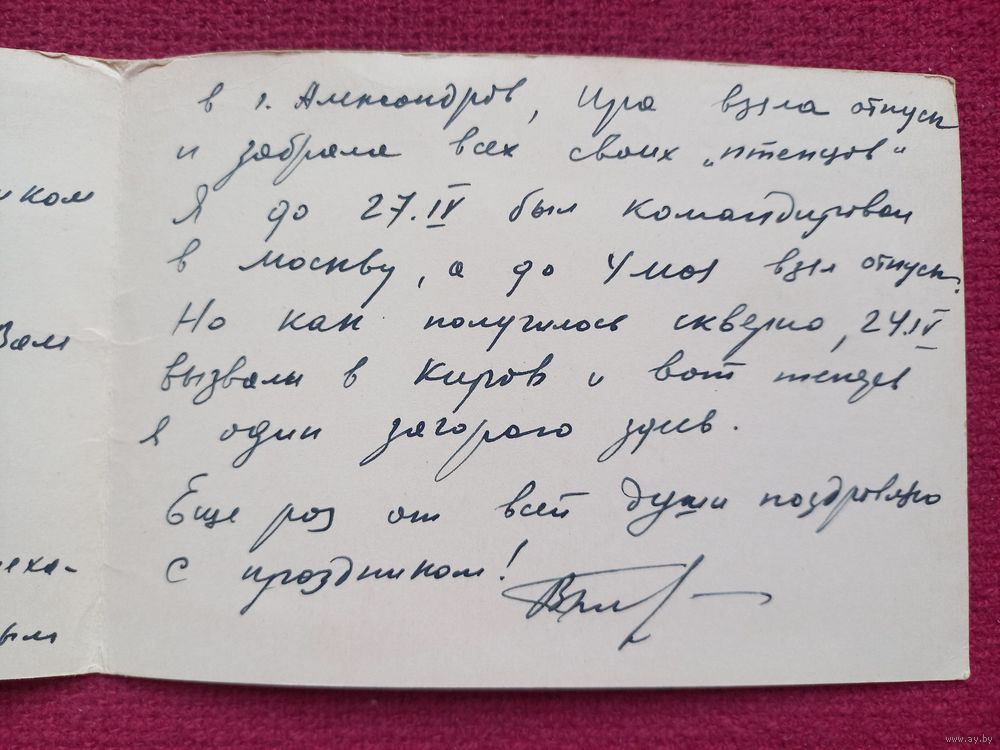 в г. Александров, Ира взяла отпуск
и забрала всех своих „птенцов"
Я до 27.IV был командирован
в Москву, а до 4 мая взял отпуск.
Но как получилось скверно, 24.IV
вызвали в Киров и вот теперь
я один загораю здесь.
Еще раз от всей души поздравляю
с праздником!
иком
Вам
еха-
ыли
www.ay.by